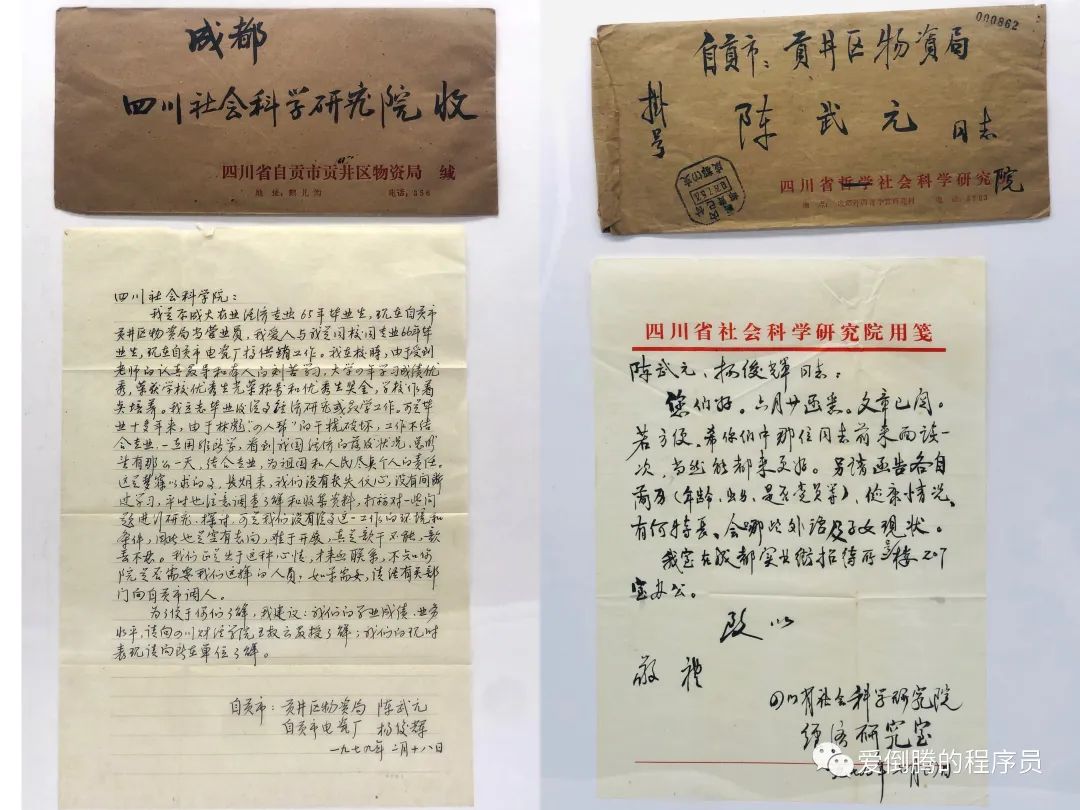 成都
四川社会科学研究院 收
四川省自贡市贡井区物资局 缄
地址:鹅儿沟 电话:356
四川社会科学院：
我是原成大农业经济专业65年毕业生，现在自贡市
贡井区物资局当营业员，我爱人与我是同校同专业66年毕
业生，现在自贡市电瓷厂搞供销工作。我在校时，由于受到
老师的认真教导和本人的刻苦学习，大学四年学习成绩优
秀，荣获学校优秀生光荣称号和优秀生奖金，学校作着
重培养。我立志毕业后从事经济研究或教学工作。可是毕
业十多年来，由于林彪、"四人帮"的干扰破坏，工作不结
合专业，一直用非所学，看到我国经济的落后状况，总感
觉有那么一天，结合专业，为祖国和人民尽点个人的责任。
长期来，我们没有丧失信心，没有间断
过学习，平时也注意调查了解和收集资料，打算对一些问
题进行研究、探讨，可是我们没有从事这一工作的环境和
条件，因此也是空有志向，难于开展，真是欲干不能，欲
罢不忍。我们正是出于这种心情，才来函联系，不知你
院是否需要我们这样的人员，如果需要，请活有关部
门向自贡市调人。
为了便于你们了解，我建议：我们的学业成绩、业务
水平，请向四川财经学院王叔云教授了解；我们的现时
表现请向所在单位了解。
自贡市：贡井区物资局 陈武元
自贡市电瓷厂 杨俊辉
一九七九年二月十八日
000862
自贡市：贡井区物资局
挂号
陈武元 同志
四川省哲学社会科学研究院
四川省社会科学研究院用笺
陈武元、杨俊辉同志：
您们好。六月廿函悉。文章已阅。
若方便，希你们中那位同志前来面谈一
次，当然能都来更好。另请函告各自
简历（年龄、出身、是否党员等），健康情况，
有何特长、会哪些外语及子女现状。
我室在成都实业街招待所三楼207
室办公。
致以
敬礼
四川省社会科学研究院
经济研究室
爱倒腾的程序员